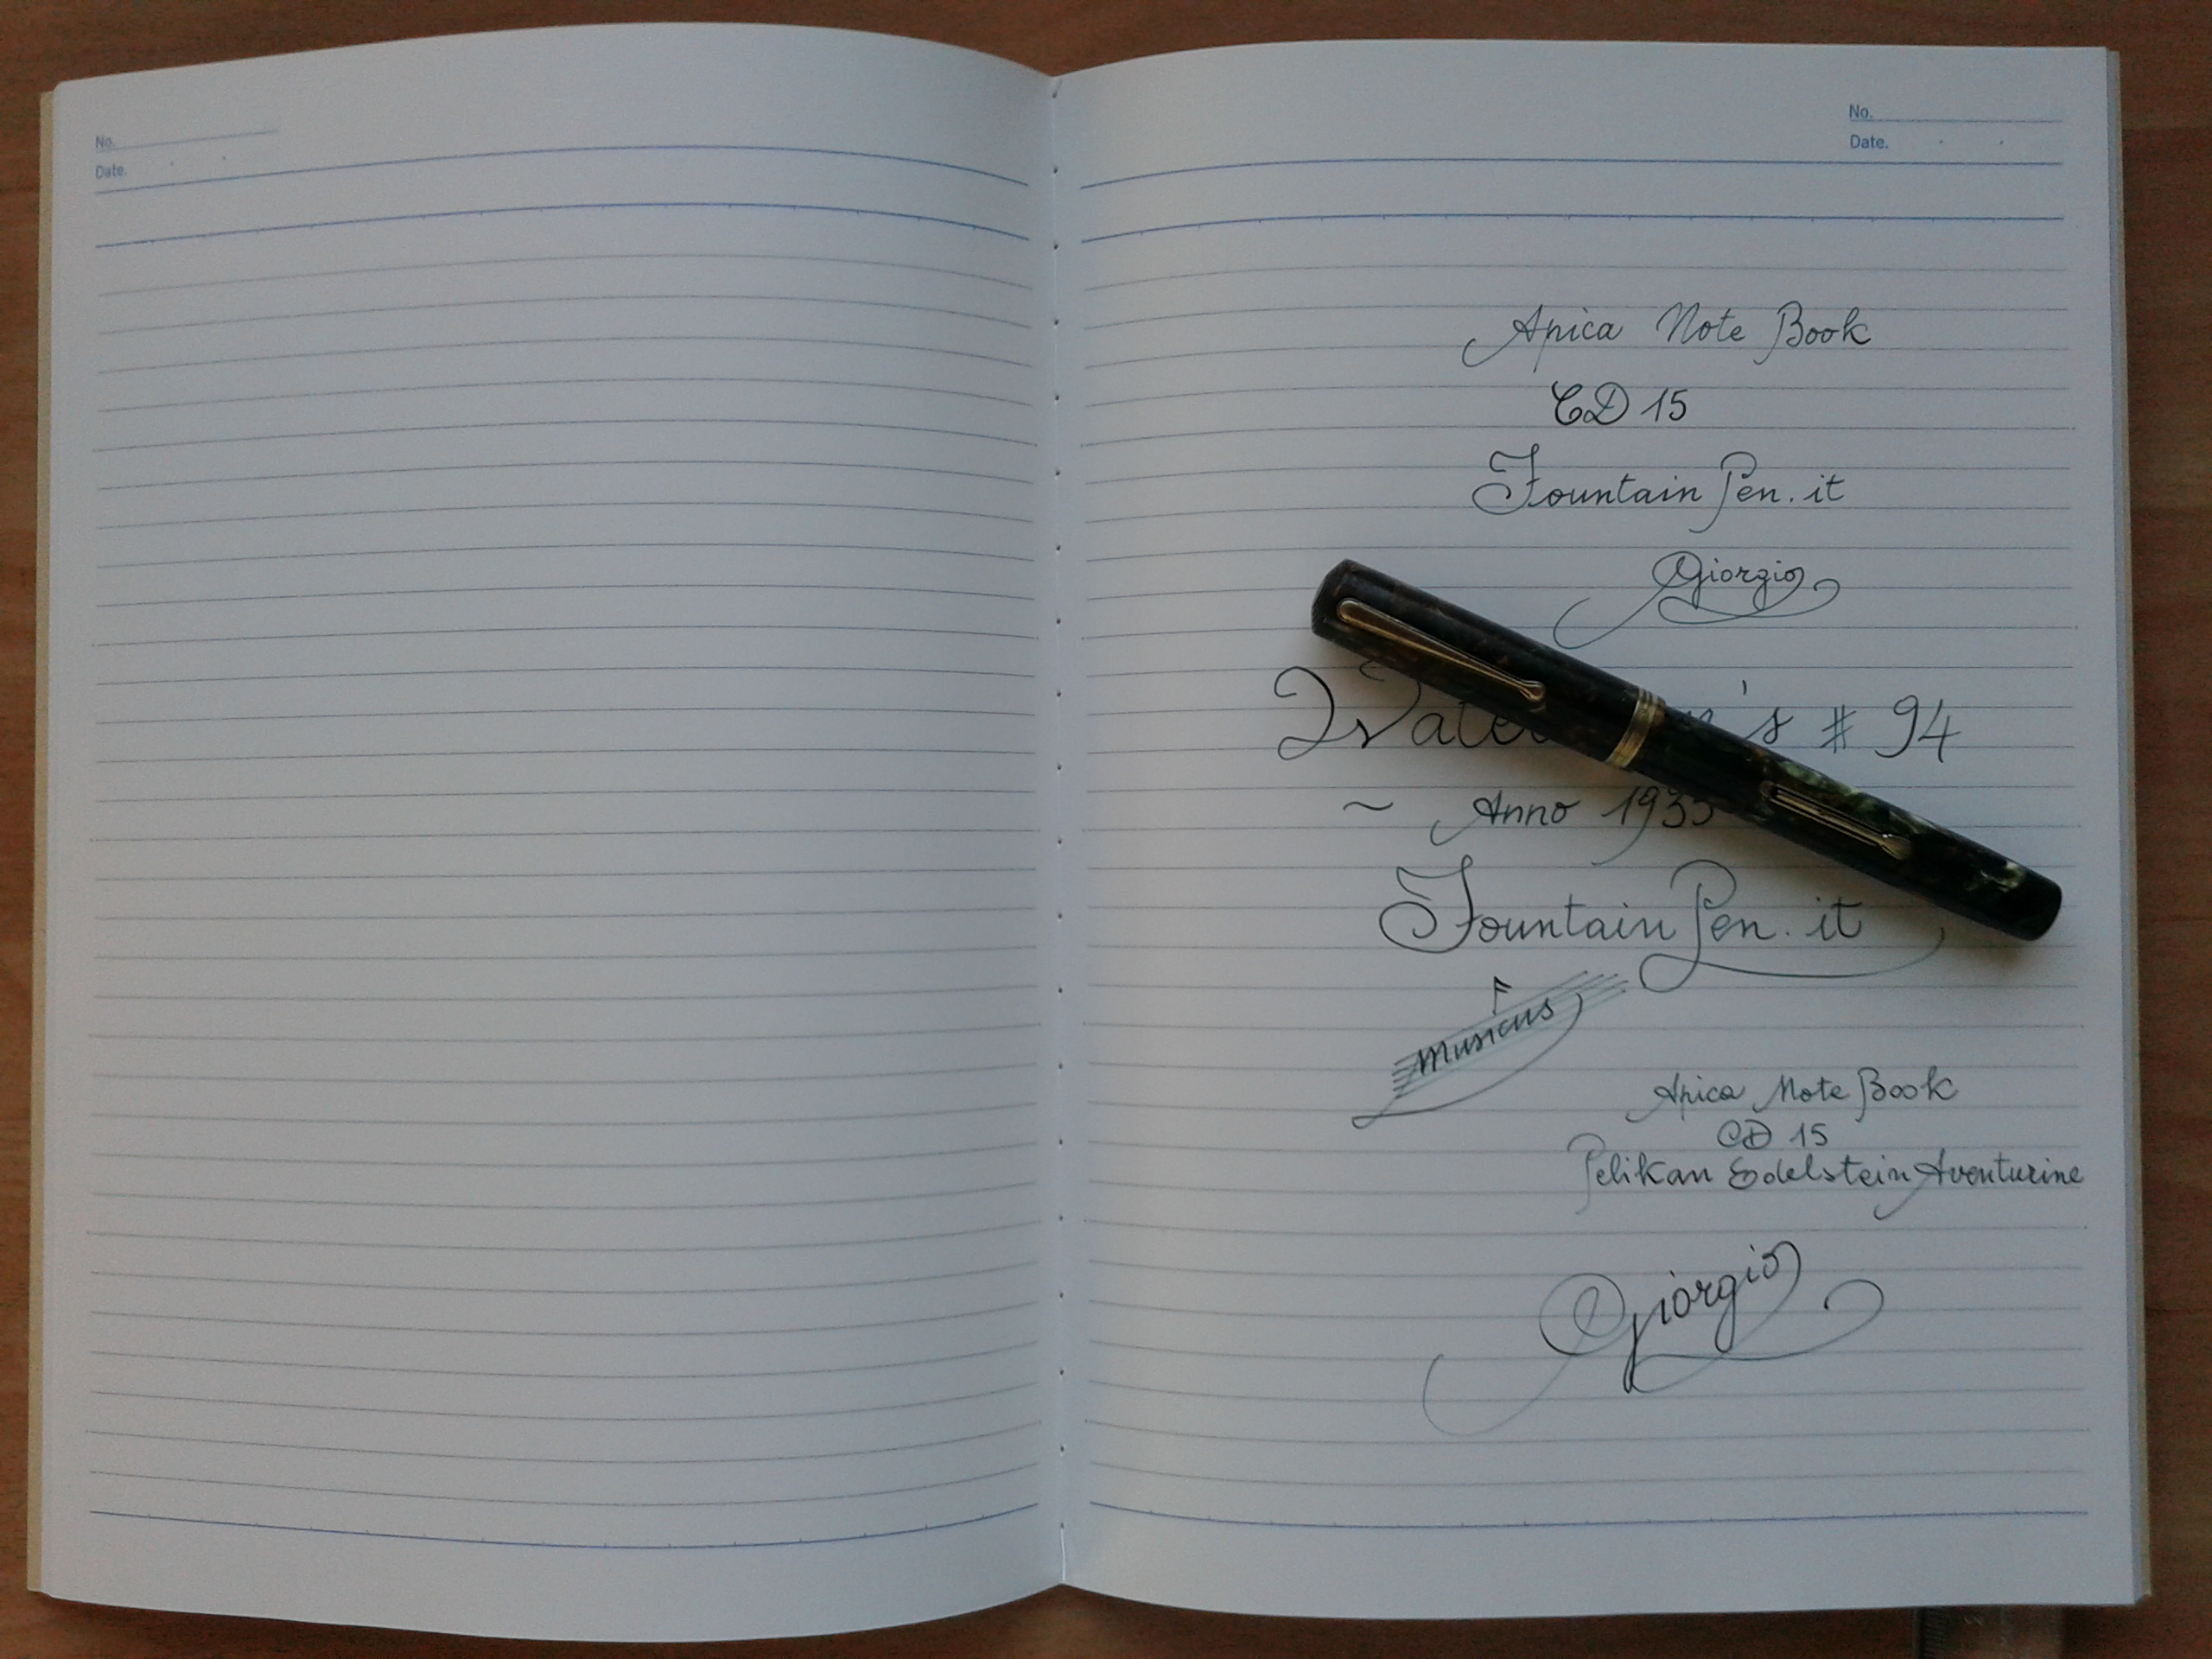 No.
Date.
No.
Date.
Apica Note Book
CD 15
FountainPen.it
Giorgio
's # 94
~ Anno 1935
FountainPen.it
Musicus
Apica Note Book
CD 15
Pelikan Edelstein Aventurine
Giorgio